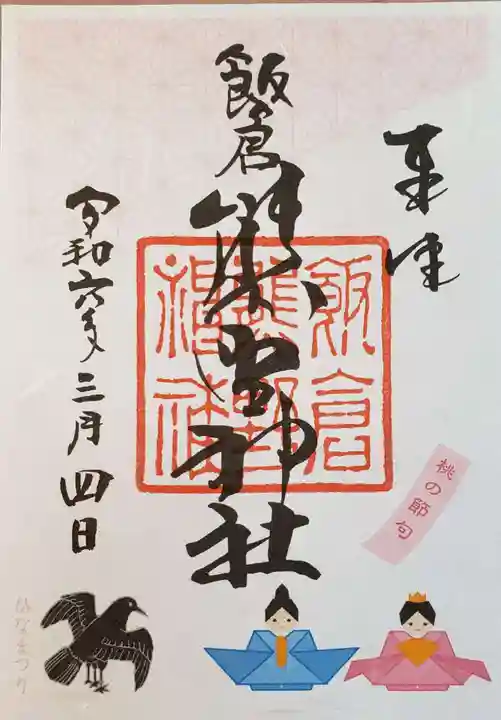 奉拝
飯倉
熊野神社
飯倉
熊野
神社
令和六年三月四日
桃の節句
ひなまつり